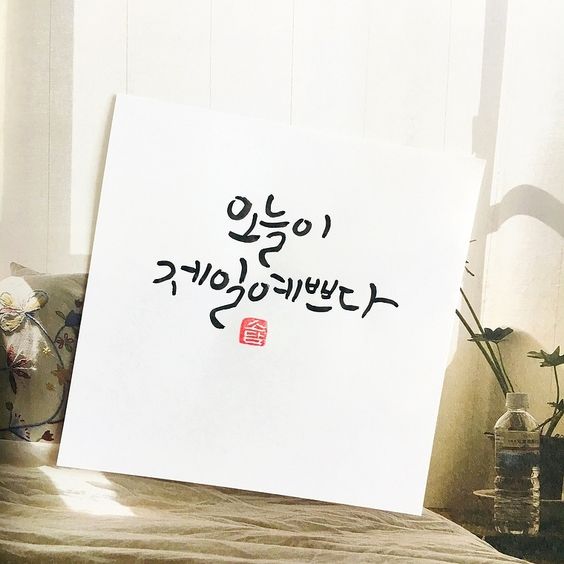 오늘이
제일예쁘다